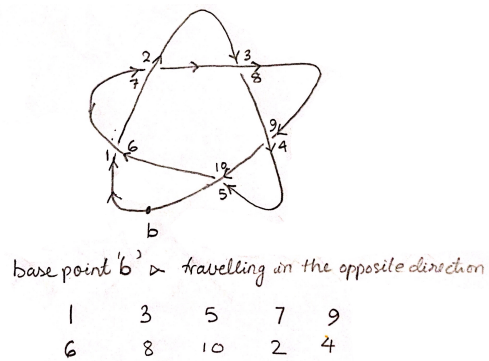 2
3
7
8
9
4
1
6
10
5
b
base point 'b' & travelling in the opposite direction
1 3 5 7 9
6 8 10 2 4